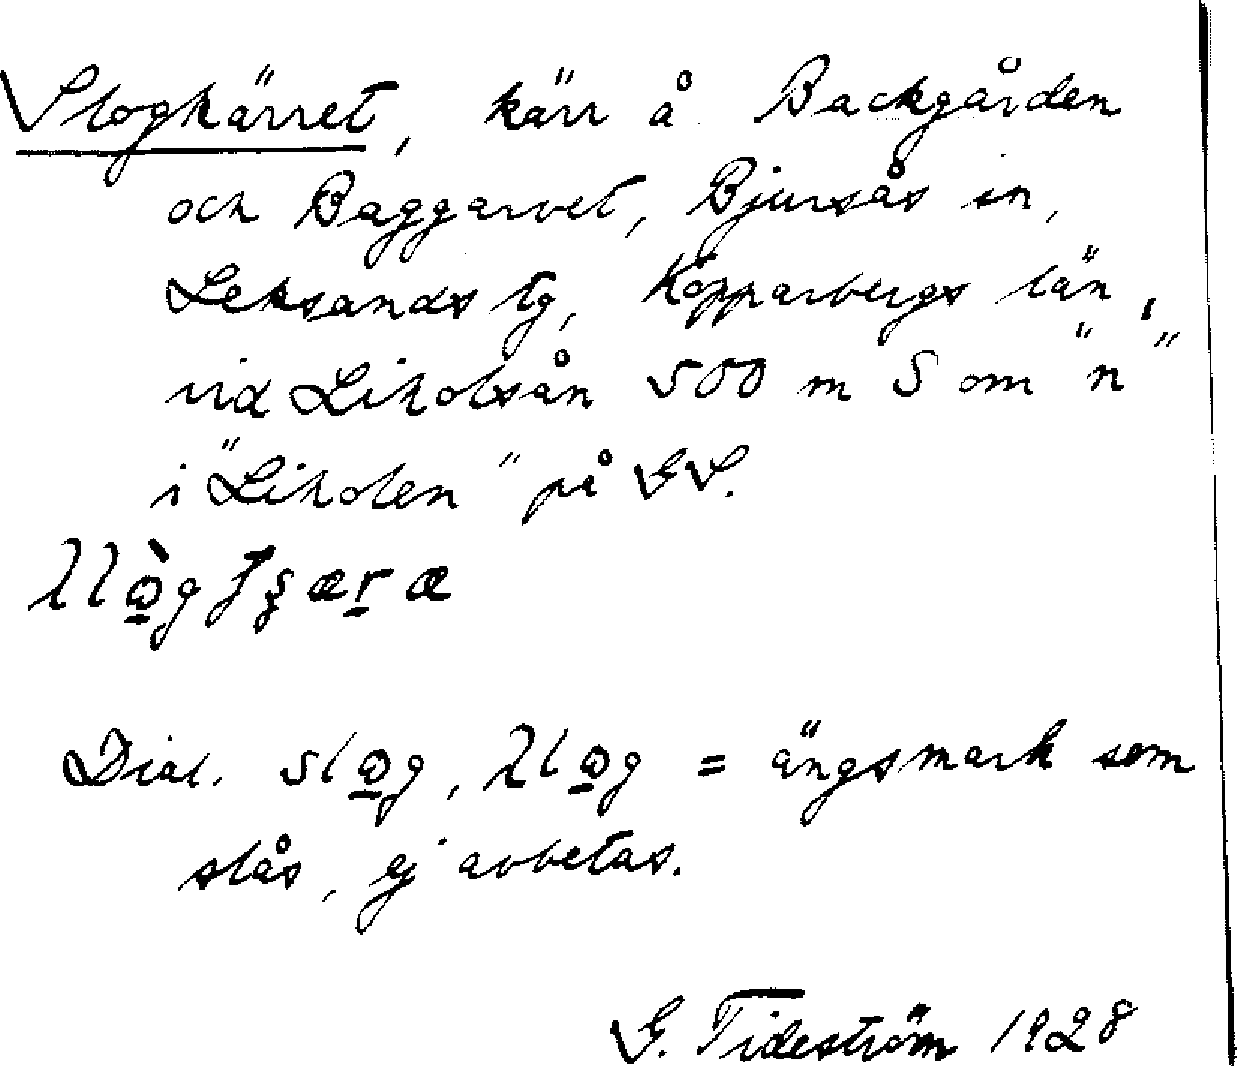 Slogkärret, kärr å Backgården
och Baggarvet, Bjursås sn,
Leksands tg, Kopparbergs län,
vid Likolsån 500 m S om "n"
i "Likolen" på GS.
Dial. slog, = ängsmark som
slås, ej avbetas.
G. Tideström 1928